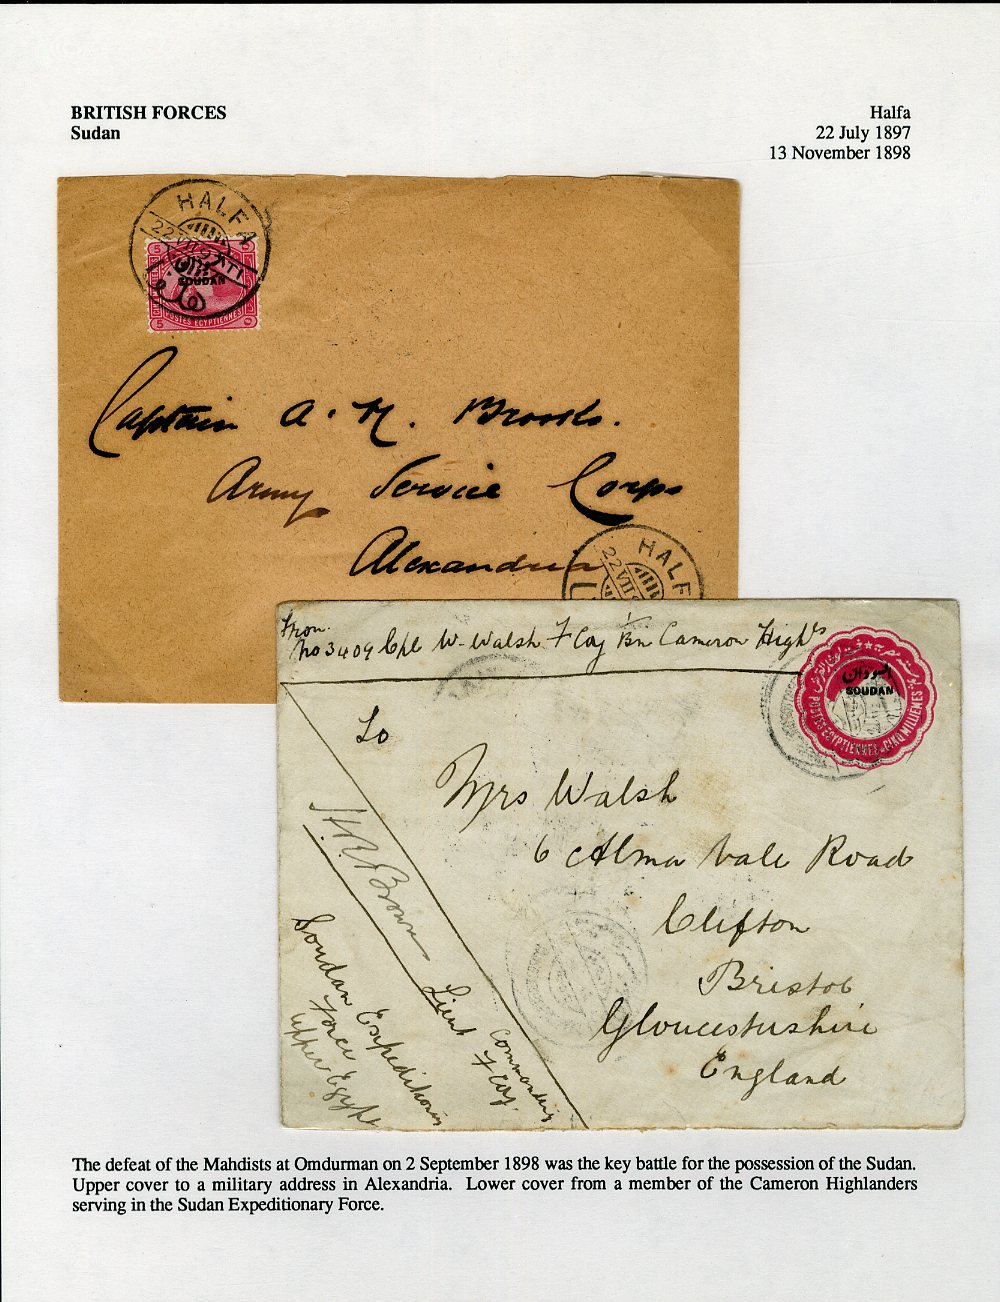 BRITISH FORCES
Sudan
Halfa
22 July 1897
13 November 1898
HALFA
22 VII 97 T1
SOUDAN
5 5
POSTES EGYPTIENNES
Captain A. N. Brooks.
Army Service Corps
Alexandria
HALF
22 VII
From
No 3409 Cpl W. Walsh F Coy 1/Bn Cameron Highrs
السودان
SOUDAN
POSTES EGYPTIENNES CINQ MILLIEMES
To
Mrs Walsh
6 Alma Vale Road
Clifton
Bristol
Gloucestershire
England
Brown Lieut
Commanding
F Coy.
Soudan Expeditionary
Force
Upper Egypt
The defeat of the Mahdists at Omdurman on 2 September 1898 was the key battle for the possession of the Sudan.
Upper cover to a military address in Alexandria. Lower cover from a member of the Cameron Highlanders
serving in the Sudan Expeditionary Force.